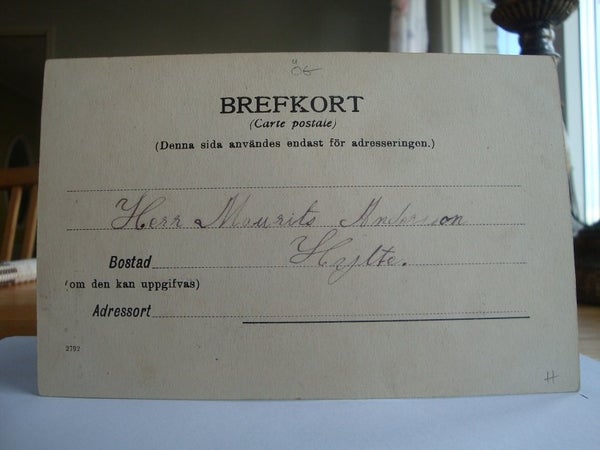 ÖG
BREFKORT
(Carte postale)
(Denna sida användes endast för adresseringen.)
Herr Maurits Andersson
Bostad Hylte.
(om den kan uppgifvas)
Adressort
2792
H